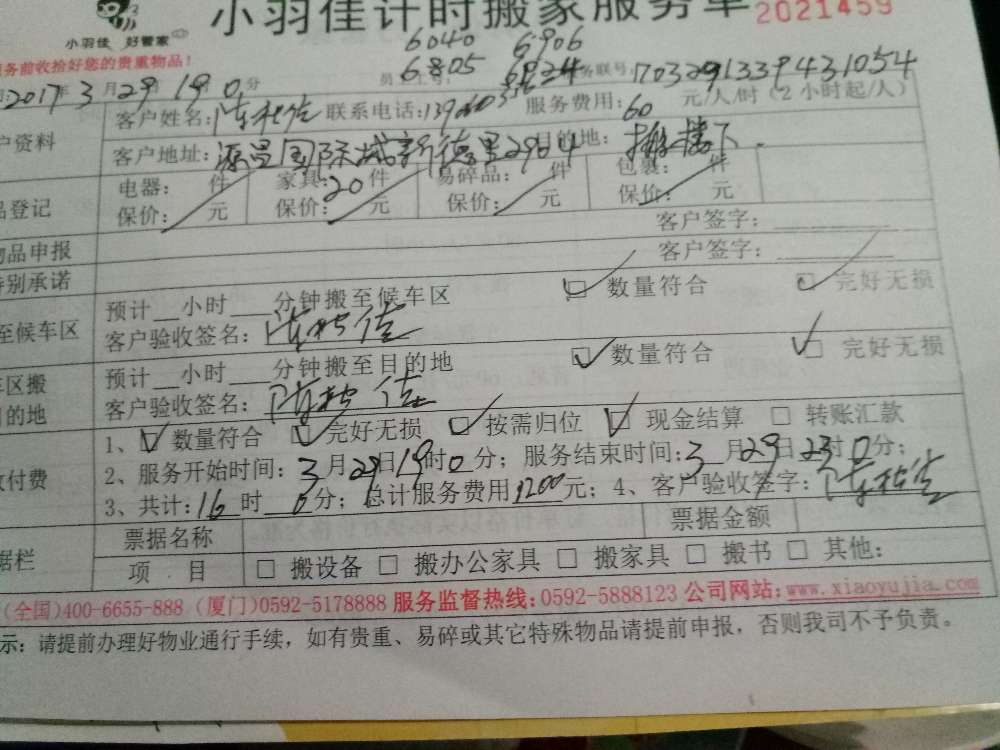 小羽佳计时搬家服务单 2021459
小羽佳 好管家
务前收拾好您的贵重物品!
6040 6906
6805 6924
2017年3月29日19时0分 务联号:1703291339431054
户资料 客户姓名: 联系电话: 服务费用:60 元/人/时(2小时起/人)
客户地址:源昌国际城新德里2904 目的地:搬楼下.
品登记 电器: 件 家具:20件 易碎品: 件 包裹: 件
保价: 元 保价: 元 保价: 元 保价: 元
物品申报 客户签字:
特别承诺 客户签字:
至候车区 预计__小时___分钟搬至候车区 数量符合 完好无损
客户验收签名:
车区搬 预计__小时___分钟搬至目的地 数量符合 完好无损
目的地 客户验收签名:
付费 1、数量符合 完好无损 按需归位 现金结算 转账汇款
2、服务开始时间:3月29日19时0分;服务结束时间:3月29日23时0分;
3、共计:16时0分;总计服务费用1200元;4、客户验收签字:
据栏 票据名称 票据金额
项 目 搬设备 搬办公家具 搬家具 搬书 其他:
(全国)400-6655-888 (厦门)0592-5178888 服务监督热线:0592-5888123 公司网站:www.xiaoyujia.com
示:请提前办理好物业通行手续,如有贵重、易碎或其它特殊物品请提前申报,否则我司不予负责。